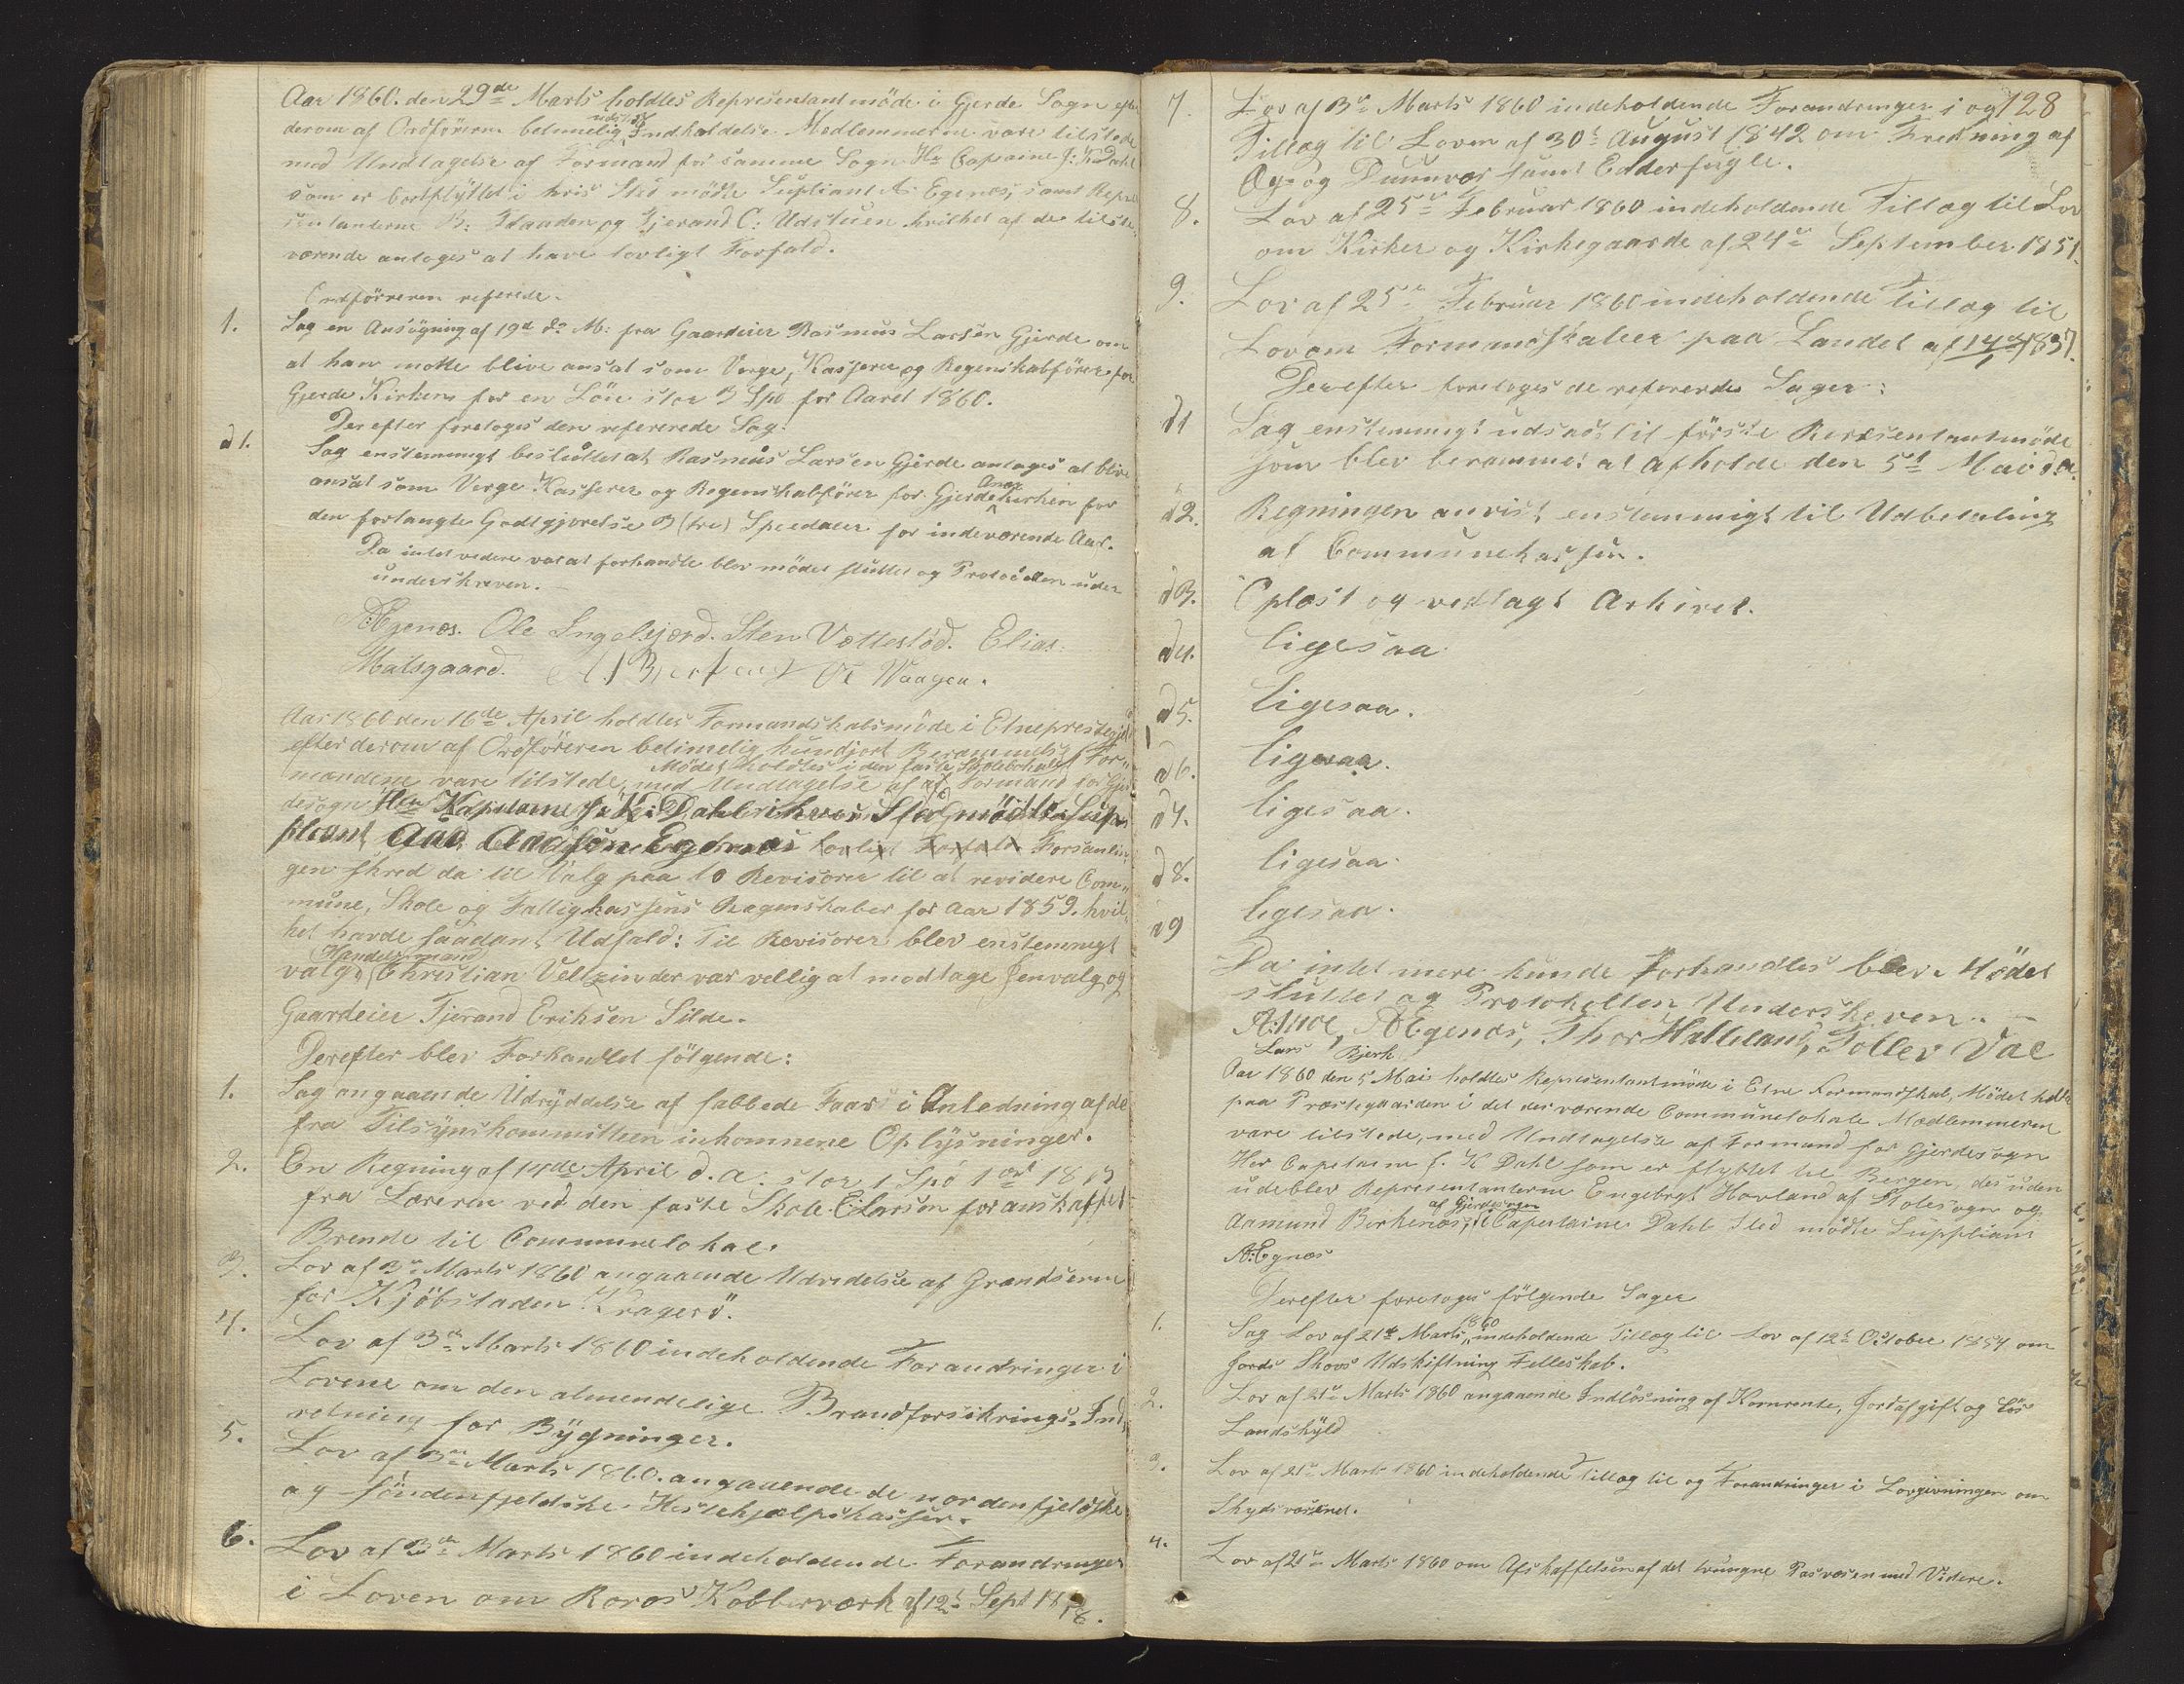 Aar 1860. den 29de Marts holdtes Representantmöde i Gjerde Sogn efter
derom af Ordföreren betimelig udsted Indkaldelse. Medlemmerne vare tilstede
med Undtagelse af Formand for samme Sogn Hr Capaine J: K Dahl
som er bortflyttet i hvis Sted mödte Supliant A: Egenæs, samt Repre
sentanterne B: Haaden og Tjerand C: Udstuen hvilket af de tilste-
værende antoges at have lovligt Forfald.
Ordföreren referede.
1. Sag en Ansögning af 19d ds M: fra Gaardeier Rasmus Larsen Gjerde om
at han motte blive ansat som Verge, Kasserer og Regenskabförer for
Gjerde Kirken for en Lön stor 3 Spd for Aaret 1860.
Derefter foretoges den refererede Sag:
ad 1. Sag enstemmigt besluttet at Rasmus Larsen Gjerde antages at blive
ansat som Verge Kasserer og Regenskabförer for Gjerde Anex kirken for
den forlangte Godtgjörelse 3 (tre) Speedaler for indeværende Aar.
Da intet vedere var at forhandle blev mödet sluttet og Protocollen under
underskreven.
A Egenæs. Ole Ingelsjord. Sten Vettestöd. Elias
Matsgaard. Waagen.
Aar 1860 den 16de April holdtes Formandskabsmöde i Etneprestegjeld
efter derom af Ordföreren betimelig kundjort Berammelse
Mödet holdtes i den faste Skolelokale For„
mændene vare tilstede, med Undtagelse af Formand for Gjer
desogn Her Kaptaine J. K: Dahl i hvis Sted mödte Sup„
pleant Aad Aadsön Egenæs lovligt Forfald Forsamlin„
gen skred da til Valg paa to Revisorer til at revidere Com„
mune, Skole og Fattigkassens Regenskaber for Aar 1859. hvil„
ket havde saadant Udfald: Til Revisorer blev enstemmigt
valgt Handelsmand Christian Veltzin der var vellig at modtage Genvalg, og
Gaardeier Tjerand Eriksen Silde.
Derefter blev Forhandlet fölgende:
1. Sag angaaende Udryddelse af skabbede Faar i Anledning af de
fra Tilsynskommitteen inkomnene Oplysninger.
2. En Regning af 14de April d. a. stor 1 Spd 1 ort 18 ß
fra Læreren ved den faste Skole E: Larsen for anskaffet
Brende til Communelokal.
3. Lov af 3de Marts 1860 angaaende Udvidelse af Grændserne
for Kjöbstaden Kragerö.
4. Lov af 3de Marts 1860 indeholdende Forandringer i
Lovene om den almendelige Brandforsikrings-Ind„
retning for Bygninger.
5. Lov af 3de Marts 1860. angaaende de nordenfjeldske
og söndenfjeldske Hestehjælpskasser.
6. Lov af 3de Marts 1860 indeholdende Forandringer
i Loven om Roros Kobberværk af 12te Sept 1818.
128
7. Lov af 3de Marts 1860 indeholdende Forandringer i og
Tillæg til Loven af 30te August 1842 om Fredning af
Æg- og Duunvær samt Edderfugle.
8. Lov af 25de Februar 1860 indeholdende Tillæg til Lov
om Kirker og Kirkegaarde af 24de September 1851.
9. Lov af 25de Februar 1860 indeholdende Tillæg til
Lov om Formandskaber paa Landet af 14/1 1837.
Derefter foretoges de refererede Sager:
ad 1 Sag enstemmigt udsat til förste Representantmöde
som blev berammet at afholde den 5te Mai d. a.
ad 2. Regningen anvist enstemmigt til Udbetaling
af Communekassen.
ad 3. Oplæst og vedlagt Arkivet.
ad 4. ligesaa
ad 5. ligesaa.
ad 6. ligesaa.
ad 7. ligesaa.
ad 8. ligesaa.
ad 9 ligesaa.
Da intet mere kunde forhandles blev Mödet
sluttet og Protokollen Underskreven. —
A: Moe, A Egenæs, Thor Halleland, Tollev Vae
Lars Bjerk
Aar 1860 den 5 Mai holdtes Representantmöde i Etne Formandskab, Mödet holdtes
paa Præstegaarden i det derværende Communelokale Medlemmerne
vare tilstede, med Undtagelse af Formand for Gjerdesogn
Her Capetaine J. K Dahl som er flyttet til Bergen, desuden
udeblev Representanterne Engebregt Hovland af Stolesogn og
Aamund Birkenæs, af Gjerdesogn i Capetaine Dahls Sted mödte Suppliant
A: Egnæs
Derefter foretoges fölgende Sager
1. Sag Lov af 21de Marts 1860 „indeholdende Tillæg til Lov af 12te October 1857 om
Jords Skovs Udskiftning Felleskab.
2. Lov af 21de Marts 1860 angaaende Indlösning af Kornrente, Jordafgift og lös
Landskyld
3. Lov af 21de Marts 1860 indeholdende Tillæg til og Forandringer i Lovgivningen om
Skydsvæsenet.
4. Lov af 21de Marts 1860 om Afskaffelsen af det tvungne Pasvæsen med Videre.